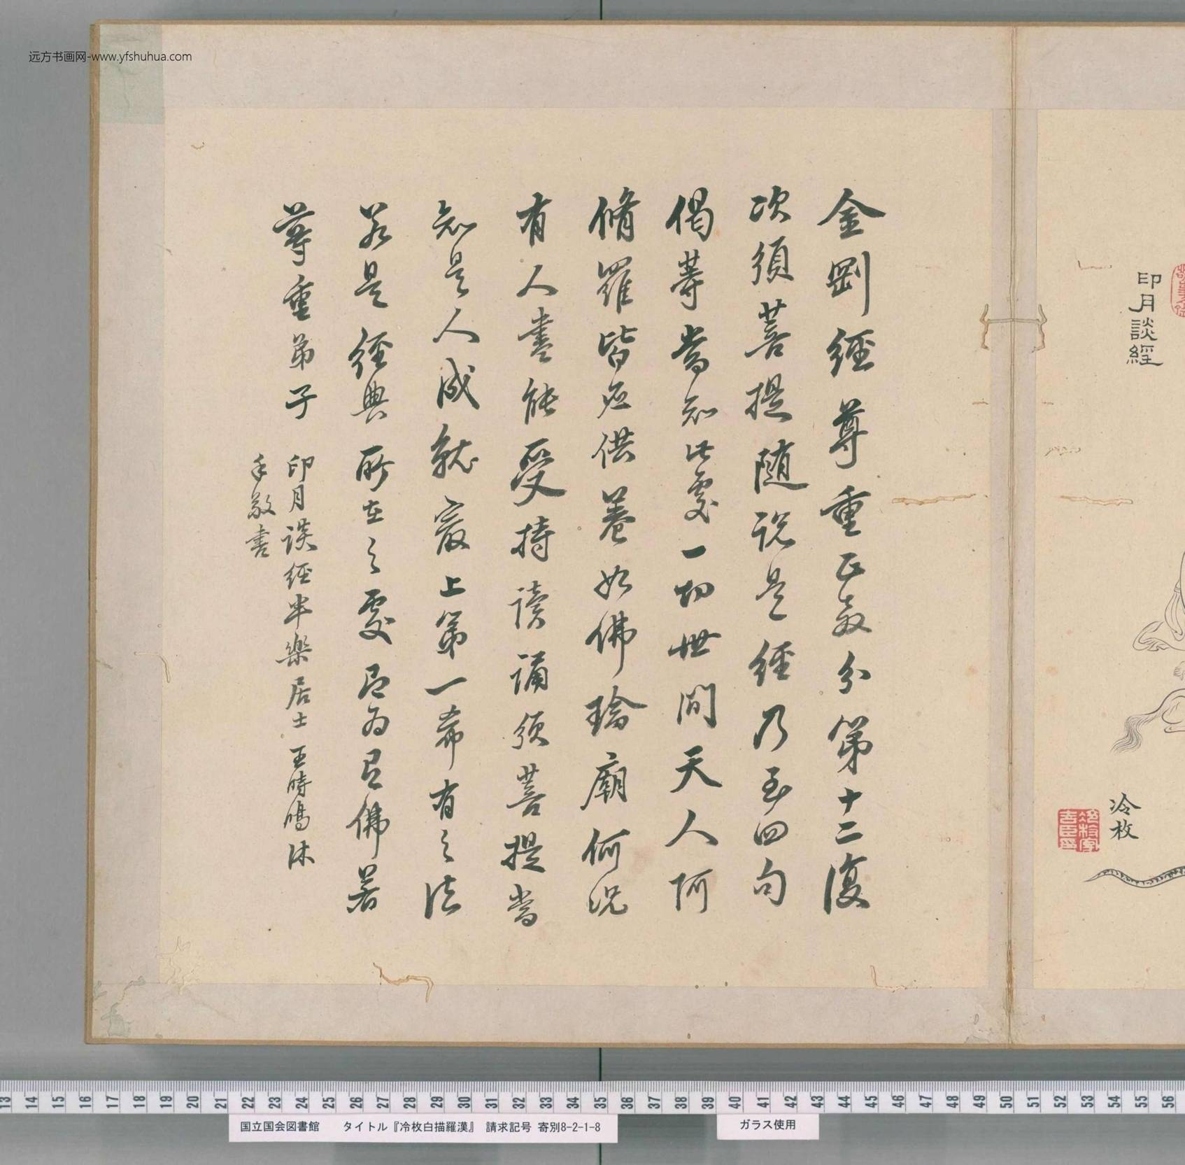 远方书画网-www.yfshuhua.com
印月談經
冷枚
金剛經尊重正教分第十二復
次須菩提随說是經乃至四句
偈等當知此處一切世間天人阿
脩羅皆應供養如佛塔廟何況
有人盡能受持讀誦須菩提當
知是人成就最上第一希有之法
若是經典所在之處即為有佛若
尊重弟子
印月談經半樂居士王時鳴沐
手敬書
13 14 15 16 17 18 19 20 21 22 23 24 25 26 27 28 29 30 31 32 33 34 35 36 37 38 39 40 41 42 43 44 45 46 47 48 49 50 51 52 53 54 55 56
国立国会図書館 タイトル『冷枚白描羅漢』 請求記号 寄別8-2-1-8
ガラス使用